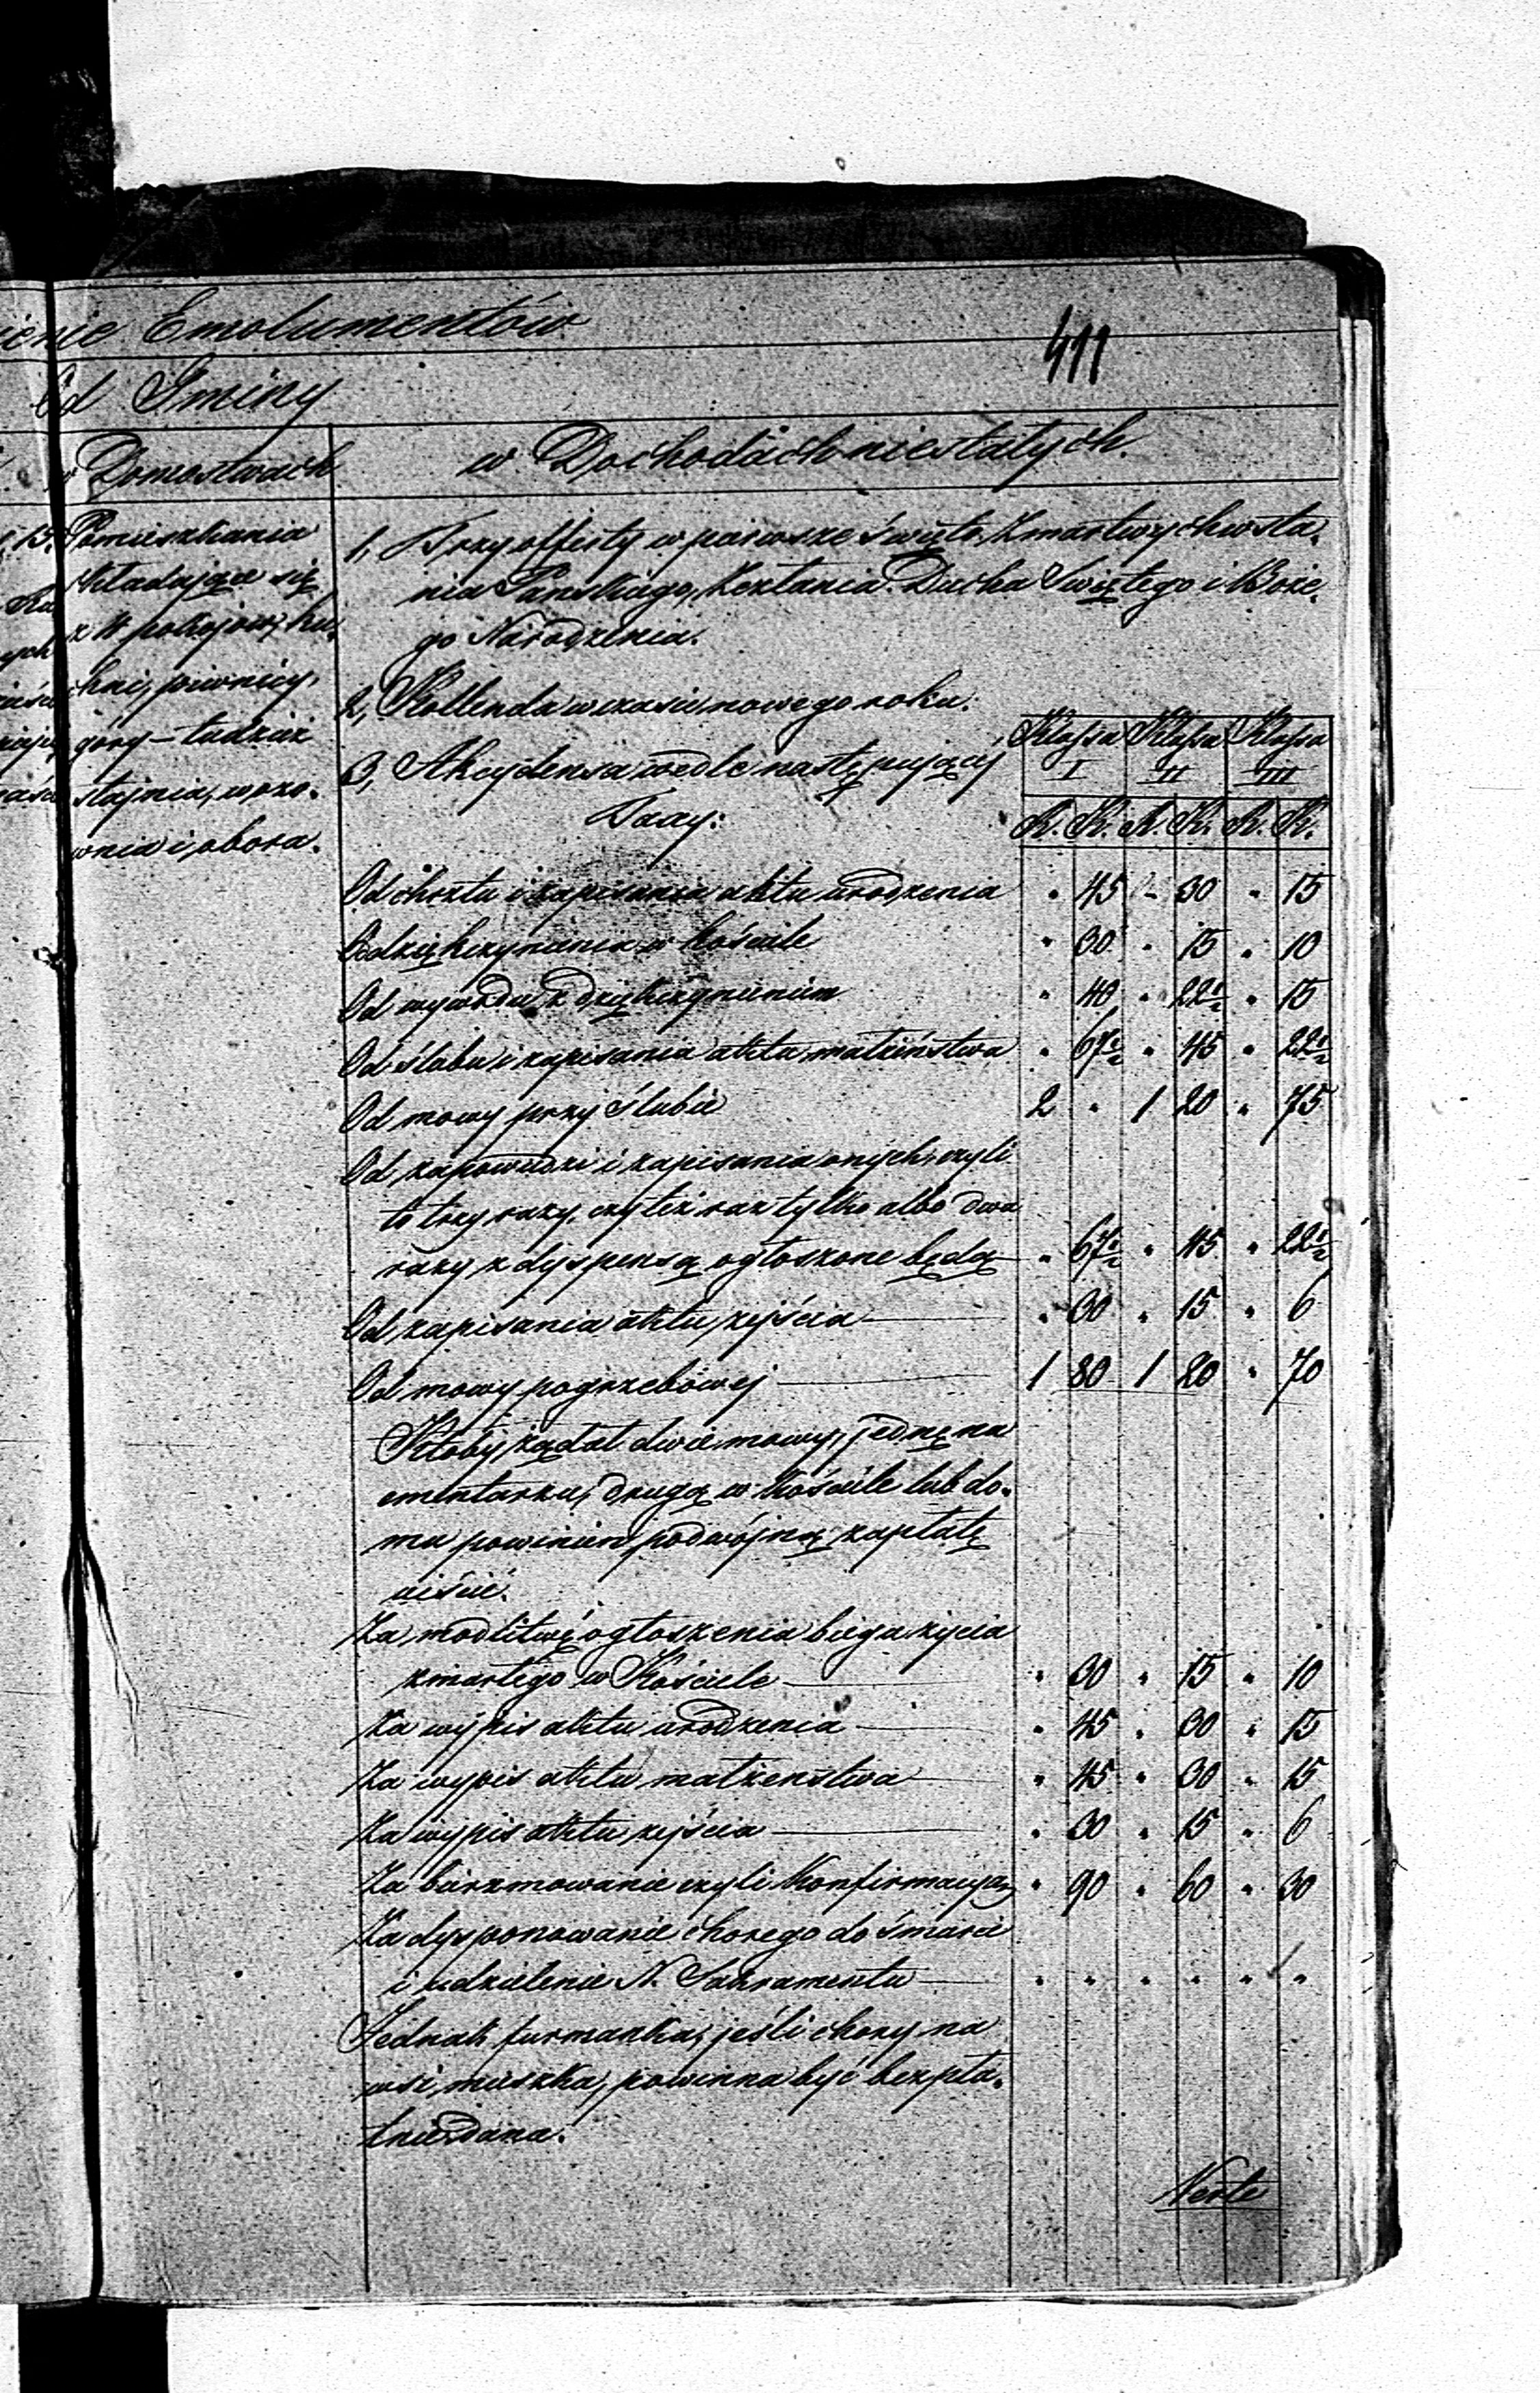 Emolumentów
411
Od Gminy
w Domostwach
w Dochodach niestałych.
Pomieszkania
składające się
z 4 pokojów, ku,
chni, piwnicy,
góry – tudzież
stajnia, wozo,
wnia i obora.
1, Trzy offerty w pierwsze święto Zmartwychwsta,
nia Pańskiego, Zesłania Ducha Świętego i Boże,
go Narodzenia.
2, Kollenda w czasie nowego roku.
3, Akcydensa wedle następującéj
Taxy:
Klassa I Klassa II Klassa III
R. K. R. K. R. K.
Od chrztu i zapisania aktu urodzenia " 45 " 30 " 15
Od dziękczynienia w kościele " 30 " 15 " 10
Od wywodu z dziękczynieniem " 40 " 22½ " 15
Od ślubu i zapisania aktu małżeństwa " 67½ " 45 " 22½
Od mowy przy ślubie 2 " 1 20 " 75
Od zapowiedzi i zapisania onych, czyli
to trzy razy, czy też raz tylko albo dwa
razy z dyspensą ogłoszone będą " 67½ " 45 " 22½
Od zapisania aktu zejścia " 30 " 15 " 6
Od mowy pogrzebowej 1 80 1 20 " 70
Ktoby żądał dwie mowy, jednę na
cmentarzu, drugą w kościele lub do,
mu powinien podwójną zapłatę
uiścić.
Za modlitwę ogłoszenia biegu życia
zmarłego w Kościele " 30 " 15 " 10
Za wypis aktu urodzenia " 45 " 30 " 15
Za wypis aktu małżeństwa " 45 " 30 " 15
Za wypis aktu zejścia " 30 " 15 " 6
Za bierzmowanie czyli Konfirmacyą " 90 " 60 " 30
Za dysponowanie chorego do śmierci
i udzielenie N. Sakramentu " " " " " "
Jednak furmanka, jeśli chory na
wsi mieszka, powinna być bezpła,
tnie dana.
Verte